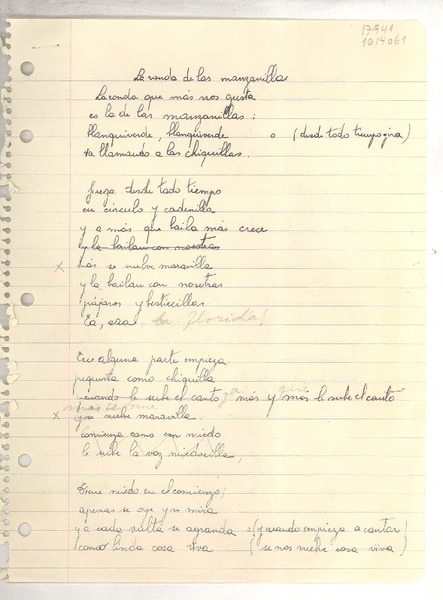 17941
1014061
La ronda de las manzanillas
La ronda que más nos gusta
es la de las manzanillas:
blanquiverde, blanquiverde o (desde todo tiempo gira)
va llamando a las chiquillas.
Juega desde todo tiempo
en círculo y cadenilla
y a más que baila más crece
y la bailan con nosotras
x más se vuelve maravilla
y la bailan con nosotras
pájaros y bestiecillas
Ea, esa La Florida!
En alguna parte empieza
pequeñita como chiquilla
cuando le sube el canto y más y más le sube el canto
x y se vuelve maravilla
comienza como con miedo
le sube la voz miedocilla,
Tiene miedo en el comienzo,
apenas se oye y se mira
y a cada vuelta se agranda o (y cuando empieza a cantar)
como linda cosa viva (se nos vuelve cosa viva)